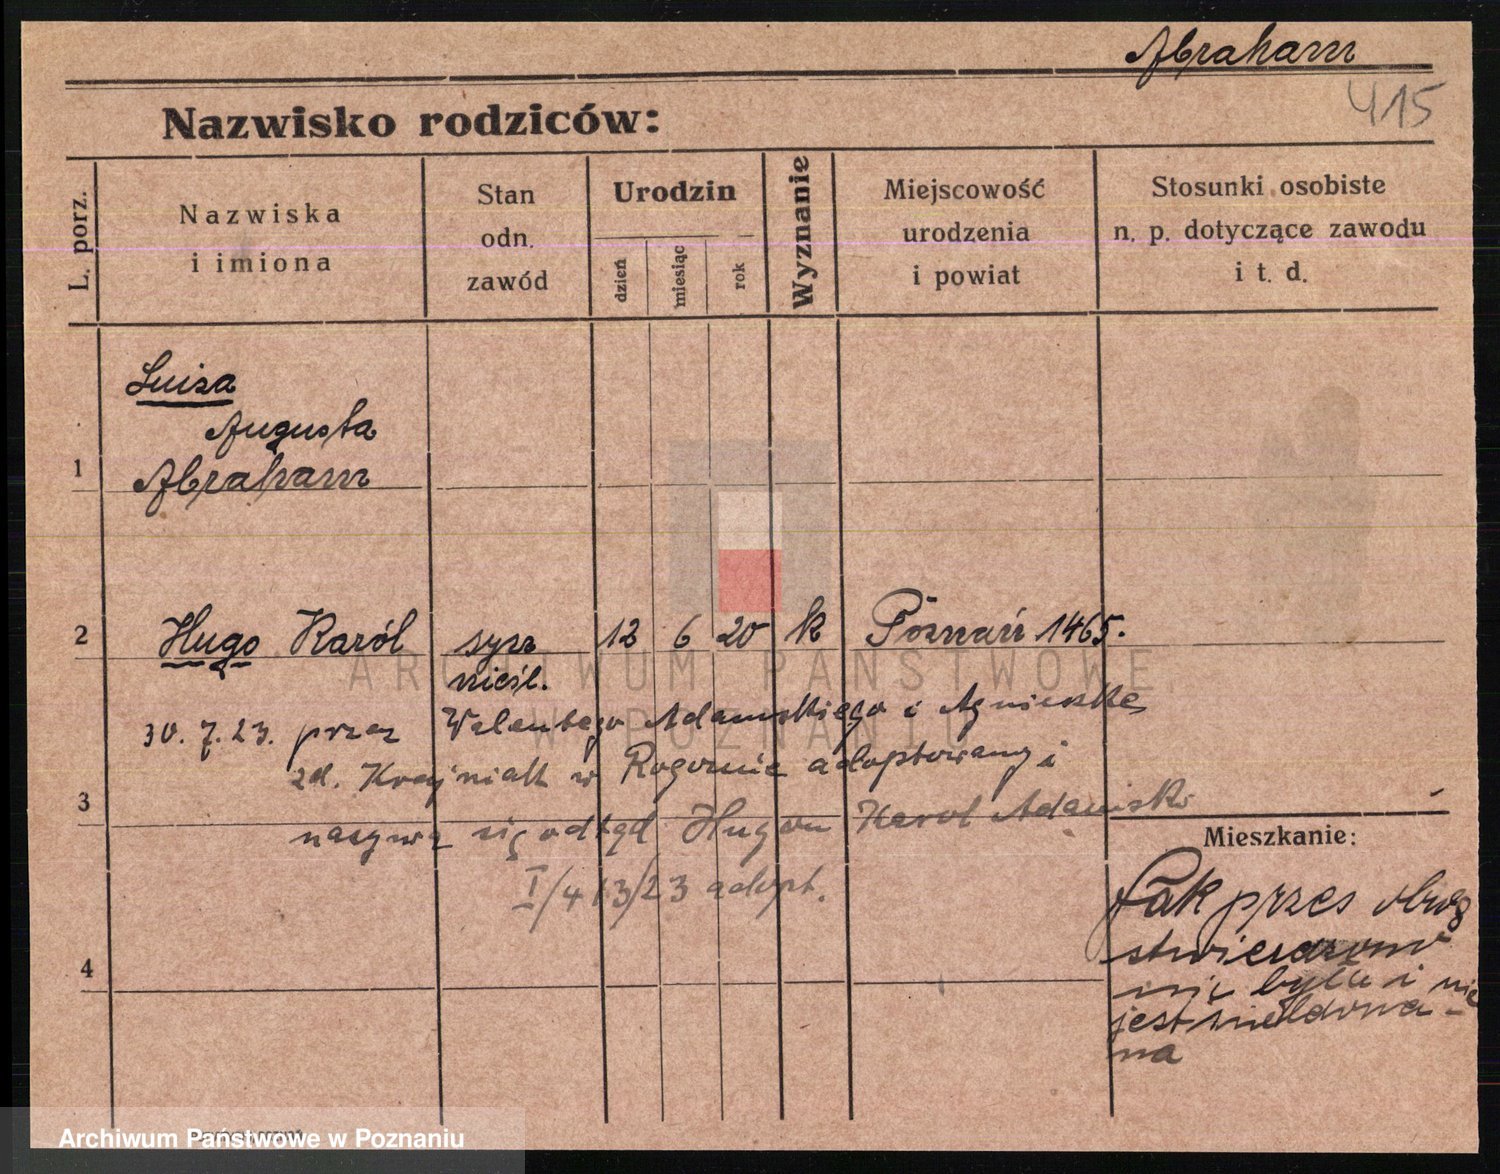 Abraham
415
Nazwisko rodziców:
L. porz.
Nazwiska
i imiona
Stan
odn.
zawód
Urodzin
dzień
miesiąc
rok
Wyznanie
Miejscowość
urodzenia
i powiat
Stosunki osobiste
n. p. dotyczące zawodu
i t. d.
Luiza
Augusta
1 Abraham
2 Hugo Karól syn 12 6 20 k Poznań 1465.
nieśl.
30. 7. 23. przez Walentego Adamskiego i Agnieszkę
zd. Krajniak w Rogoźnie adoptowany i
3 nazywa się odtąd Hugon Karol Adamski
I/413/23 adopt.
4
Mieszkanie:
Jak przez
stwierdzono
nie była i nie
jest meldowa-
na
ARCHIWUM PAŃSTWOWE
W POZNANIU
Archiwum Państwowe w Poznaniu